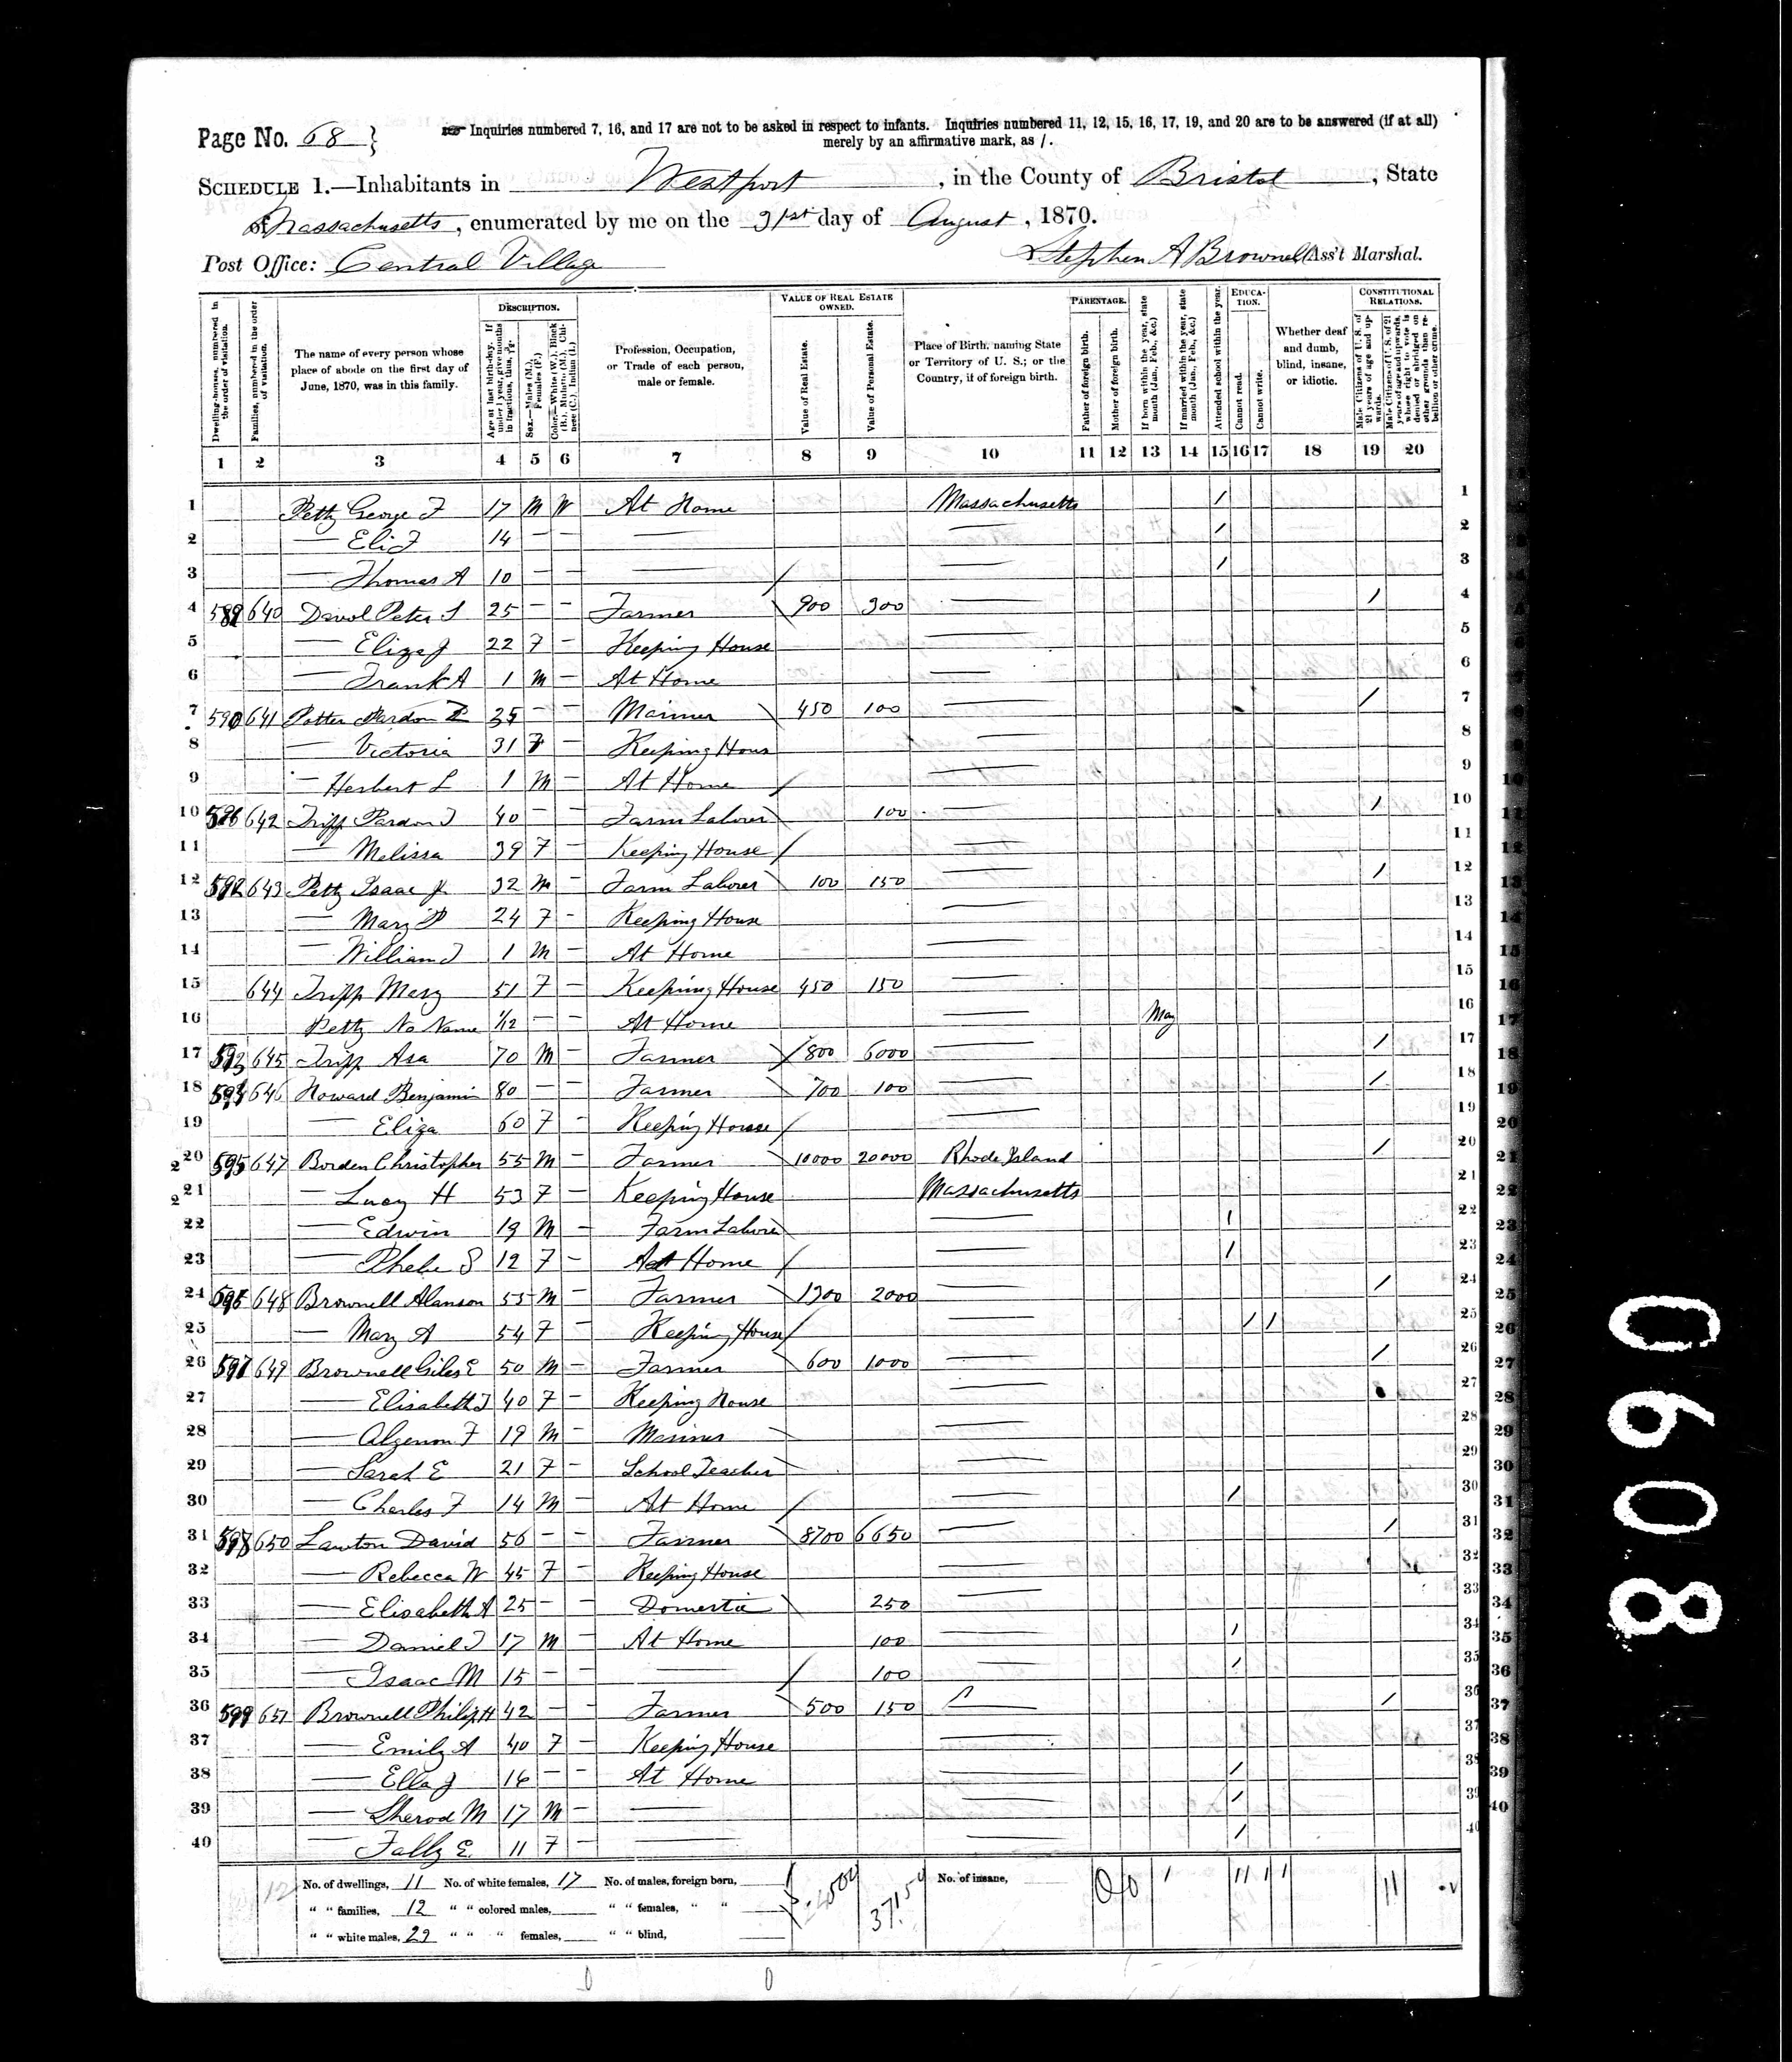 Page No. 68 } Inquiries numbered 7, 16, and 17 are not to be asked in respect to infants. Inquiries numbered 11, 12, 15, 16, 17, 19, and 20 are to be answered (if at all)
merely by an affirmative mark, as /.
SCHEDULE 1.—Inhabitants in Westport, in the County of Bristol, State
of Massachusetts, enumerated by me on the 31st day of August, 1870.
Post Office: Central Village Stephen A Brownell Ass't Marshal.
Dwelling-houses, numbered in the order of visitation.
Families, numbered in the order of visitation.
The name of every person whose place of abode on the first day of June, 1870, was in this family.
DESCRIPTION.
Age at last birth-day. If under 1 year, give months in fractions, thus, 3/12.
Sex.—Males (M.), Females (F.)
Color.—White (W.), Black (B.), Mulatto (M.), Chinese (C.), Indian (I.)
Profession, Occupation, or Trade of each person, male or female.
VALUE OF REAL ESTATE OWNED.
Value of Real Estate.
Value of Personal Estate.
Place of Birth, naming State or Territory of U. S.; or the Country, if of foreign birth.
PARENTAGE.
Father of foreign birth.
Mother of foreign birth.
If born within the year, state month (Jan., Feb., &c.)
If married within the year, state month (Jan., Feb., &c.)
Attended school within the year.
EDUCATION.
Cannot read.
Cannot write.
Whether deaf and dumb, blind, insane, or idiotic.
CONSTITUTIONAL RELATIONS.
Male Citizens of U. S. of 21 years of age and upwards.
Male Citizens of U. S. of 21 years of age and upwards, whose right to vote is denied or abridged on other grounds than rebellion or other crime.
1 2 3 4 5 6 7 8 9 10 11 12 13 14 15 16 17 18 19 20
1 Petty George F 17 M W At Home Massachusetts / 1
2 — Eli F 14 — — — — / 2
3 — Thomas A 10 — — — — / 3
4 589 640 Davol Peter S 25 — — Farmer 900 300 — / 4
5 — Eliza J 22 F — Keeping House — 5
6 — Frank A 1 M — At Home — 6
7 590 641 Potter Pardon 35 — — Mariner 450 100 — / 7
8 — Victoria 31 F — Keeping Hous — 8
9 — Herbert L 1 M — At Home — 9
10 642 Tripp Pardon T 40 — — Farm Laborer 100 — / 10
11 — Melissa 39 F — Keeping House — 11
12 592 643 Petty Isaac Jr 32 M — Farm Laborer 100 150 — / 12
13 — Mary P 24 F — Keeping House — 13
14 — William T 1 M — At Home — 14
15 644 Tripp Mary 51 F — Keeping House 450 150 — 15
16 Petty No Name 1/12 — — At Home — May 16
17 593 645 Tripp Asa 70 M — Farmer 1800 6000 — / 17
18 594 646 Howard Benjamin 80 — — Farmer 700 100 — / 18
19 — Eliza 60 F — Keeping House — 19
20 595 647 Borden Christopher 55 M — Farmer 10000 20000 Rhode Island / 20
21 — Lucy H 53 F — Keeping House Massachusetts 21
22 — Edwin 19 M — Farm Laborer — / 22
23 — Phebe S 12 F — At Home — / 23
24 596 648 Brownell Alanson 55 M — Farmer 1300 2000 — / 24
25 — Mary A 54 F — Keeping House — / / 25
26 597 649 Brownell Giles E 50 M — Farmer 600 1000 — / 26
27 — Elisabeth T 40 F — Keeping House — 27
28 — Algenon F 19 M — Mariner — 28
29 — Sarah E 21 F — School Teacher — 29
30 — Charles F 14 M — At Home — / 30
31 598 650 Lawton David 56 — — Farmer 8700 6650 — / 31
32 — Rebecca W 45 F — Keeping House — 32
33 — Elisabeth A 25 — — Domestic 250 — 33
34 — Daniel T 17 M — At Home 100 — / 34
35 — Isaac M 15 — — — 100 — / 35
36 599 651 Brownell Philip H 42 — — Farmer 500 150 — / 36
37 — Emily A 40 F — Keeping House — 37
38 — Ella J 16 — — At Home — / 38
39 — Sherod M 17 M — — — / 39
40 — Fally E 11 F — — — / 40
No. of dwellings, 11 No. of white females, 17 No. of males, foreign born, No. of insane,
" " families, 12 " " colored males, " " females, " "
" " white males, 23 " " " females, " " blind,
0608